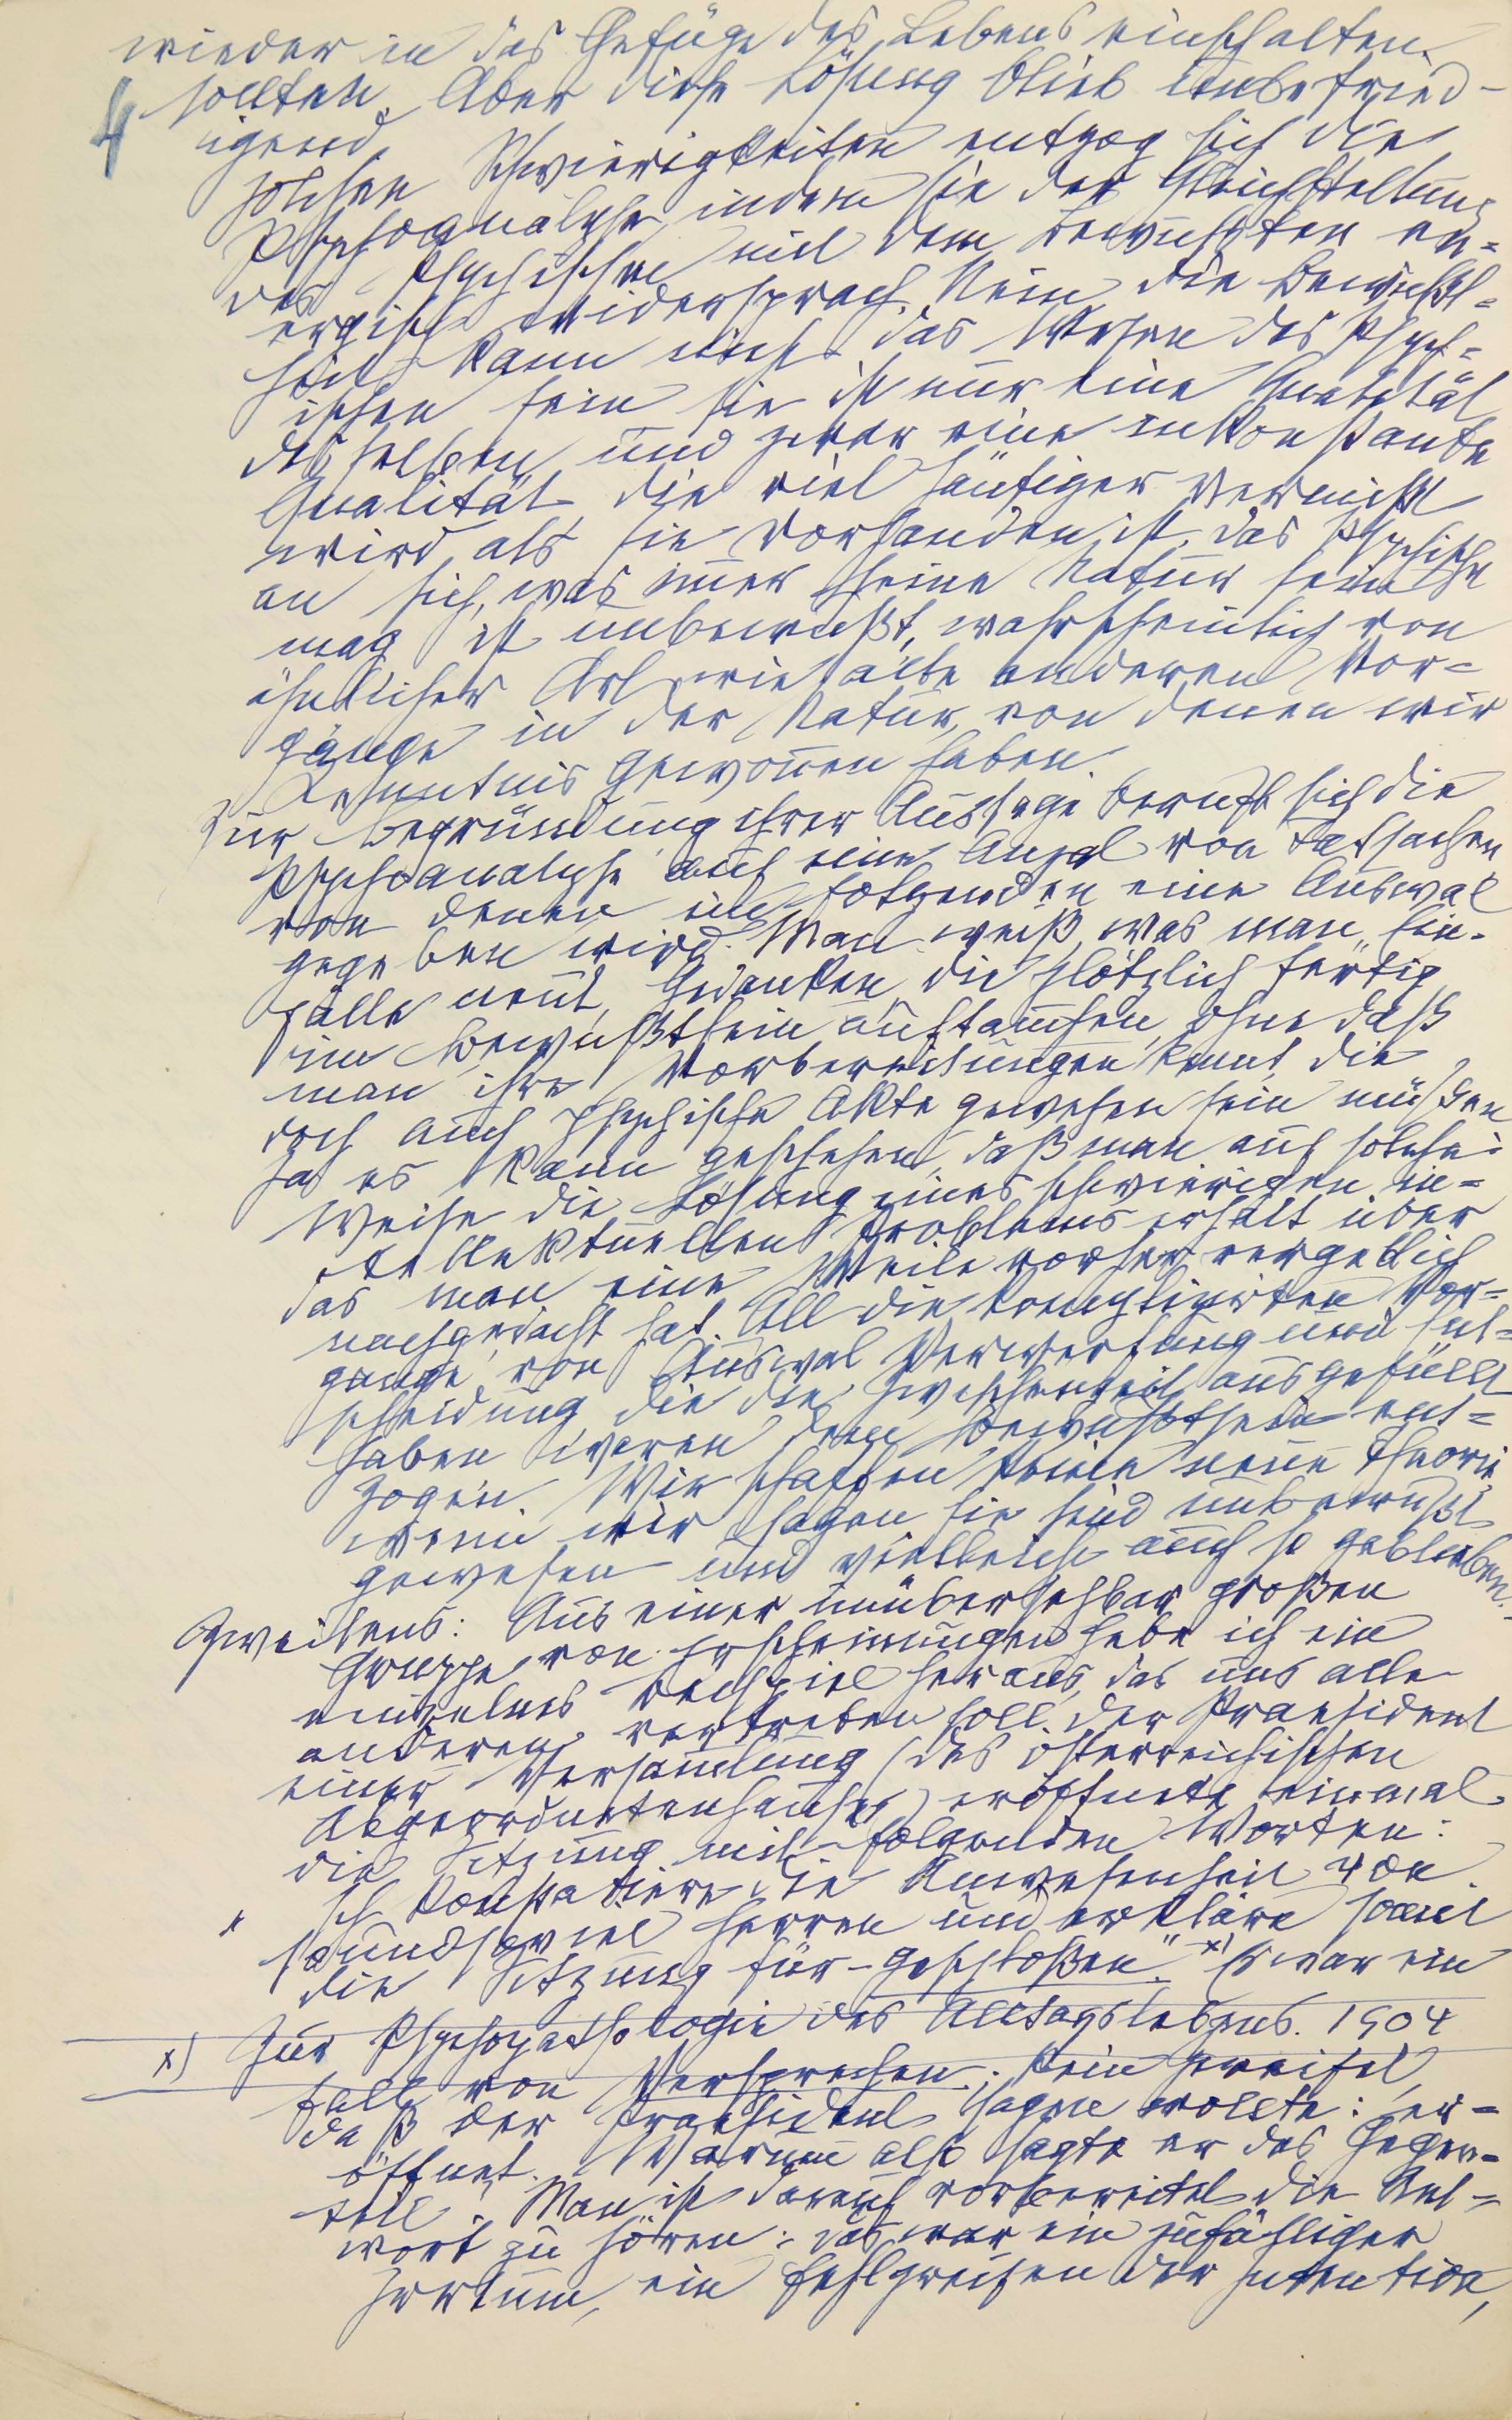 wieder in das Gefüge des Lebens einschalten
4 sollten. Aber diese Lösung blieb unbefried-
igend.
Solchen Schwierigkeiten entzog sich die
Psychoanalyse, indem sie der Gleichstellung
des Psychischen mit dem Bewußten en=
ergisch widersprach. Nein die Bewußt=
heit kann nicht das Wesen des Psych=
ischen sein sie ist nur eine Qualität
desselben und zwar eine inkonstante
Qualität die viel häufiger vermißt
wird, als sie vorhanden ist. Das Psychische
an sich, was immer seine Natur sein
mag ist unbewußt, wahrscheinlich von
ähnlicher Art wie alle anderen Vor=
gänge in der Natur, von denen wir
Kenntnis gewonnen haben.
Zur Begründung ihrer Aussage beruft sich die
Psychoanalyse auf eine Anzal von Tatsachen
von denen im folgenden eine Auswal
gegeben wird. Man weiß, was man „Ein-
fälle nennt, Gedanken die plötzlich fertig
im Bewußtsein auftauchen, ohne daß
man ihre Vorbereitungen kennt die
doch auch psychische Akte gewesen sein müßen
Ja es kann geschehen, daß man auf solche
Weise die Lösung eines schwierigen in=
tellektuellen Problems erhält über
das man eine Weile vorher vergeblich
nachgedacht hat. All die komplizirten Vor=
gänge von Auswal Verwerfung und Ent=
scheidung die die Zwischenzeit ausgefüllt
haben waren dem Bewußtsein ent=
zogen. Wir schaffen keine neue Theorie
wenn wir sagen sie sind unbewußt
gewesen und vielleicht auch so geblieben.
Zweitens: Aus einer unübersehbar großen
Gruppe von Erscheinungen hebe ich ein
einzelnes Beispiel heraus, das uns alle
anderen vertreten soll. Der Praesident
einer Versammlung (des österreichischen
Abgeordnetenhauses) eröffnete einmal
die Sitzung mit folgenden Worten:
Ich konstatiere die Anwesenheit von
x soundsoviel Herren und erkläre somit
die Sitzung für-geschloßen." x) Es war ein
x) Zur Psychopathologie des Alltagslebens. 1904
Fall von Versprechen; kein Zweifel,
daß der Praesident sagen wollte: er=
öffnet. Warum also sagte er das Gegen=
teil? Man ist darauf vorbereitet die Ant=
wort zu hören: das war ein zufälliger
Irrtum, ein Fehlgreifen der Intention,